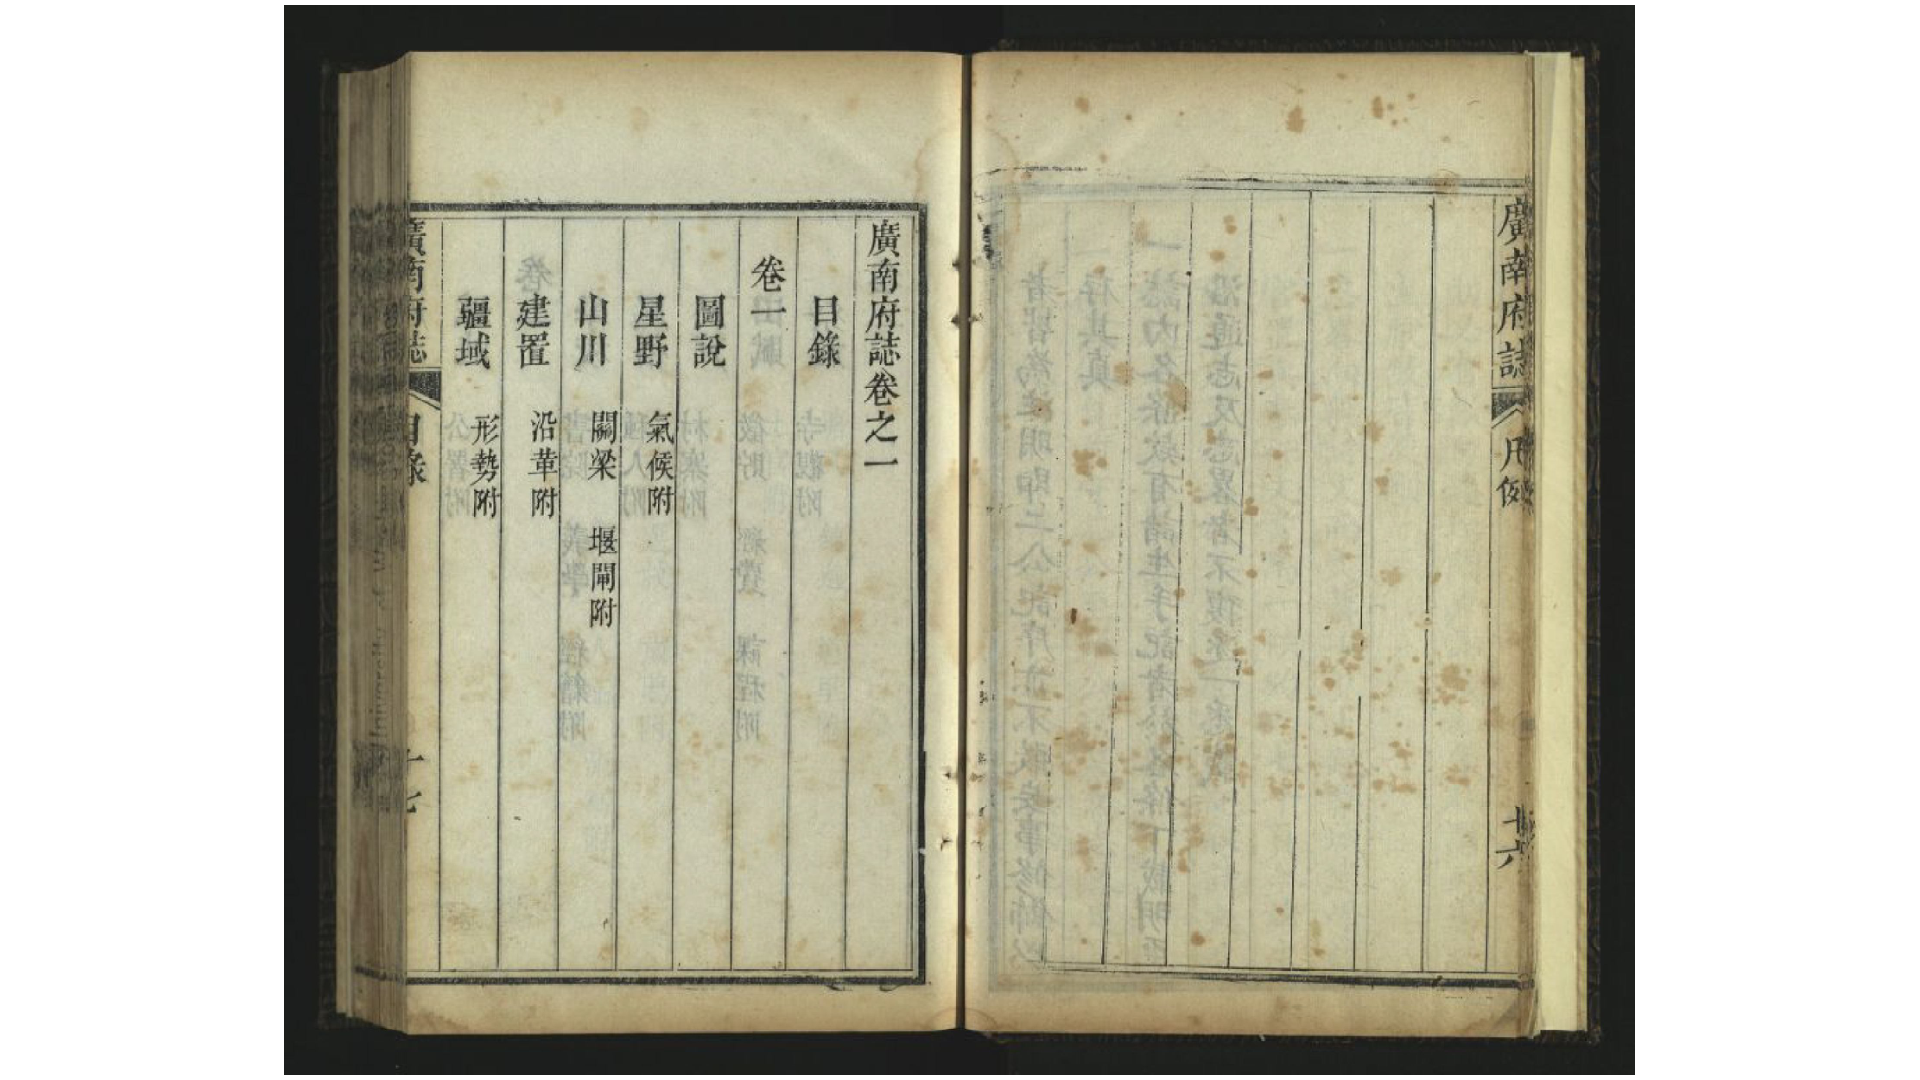 廣南府誌
凡例
十六
廣南府誌卷之一
目錄
卷一
圖說
星野 氣候附
山川 關梁 堰閘附
建置 沿革附
疆域 形勢附
廣南府誌
目錄
十七